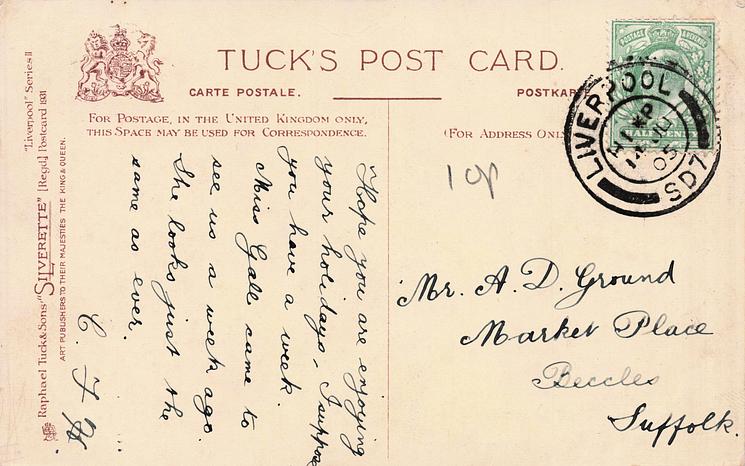 TUCK'S POST CARD.
CARTE POSTALE.
POSTKAR
FOR POSTAGE, IN THE UNITED KINGDOM ONLY,
THIS SPACE MAY BE USED FOR CORRESPONDENCE.
(FOR ADDRESS ONL
"Liverpool" Series II
Raphael Tuck & Sons' "SILVERETTE" [Regd.] Postcard 1831
ART PUBLISHERS TO THEIR MAJESTIES THE KING & QUEEN.
Hope you are enjoying
your holidays. I suppose
you have a week.
Miss Gall came to
see us a week ago.
She looks just the
same as ever.
POSTAGE & REVENUE
HALFPENNY
LIVERPOOL
05
SD7
10p
Mr. A. D. Ground
Market Place
Beccles
Suffolk.